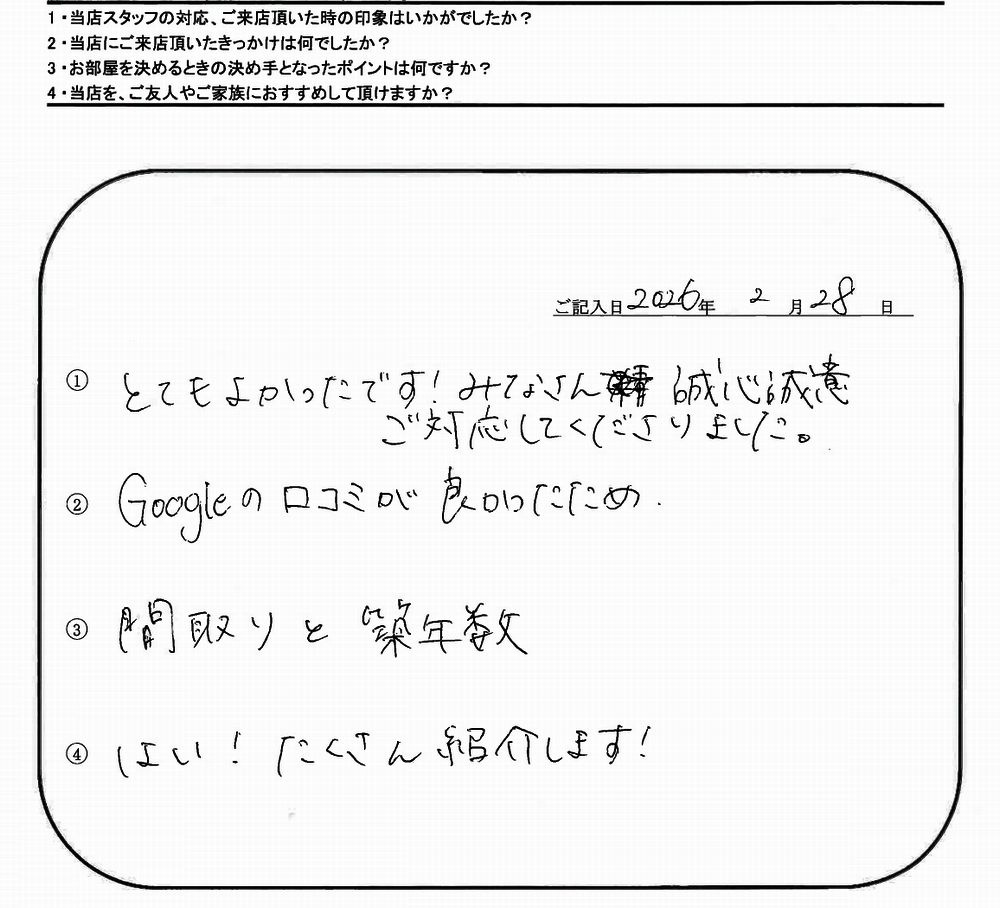 1・当店スタッフの対応、ご来店頂いた時の印象はいかがでしたか？
2・当店にご来店頂いたきっかけは何でしたか？
3・お部屋を決めるときの決め手となったポイントは何ですか？
4・当店を、ご友人やご家族におすすめして頂けますか？
ご記入日2026年 2月28日
① とてもよかったです！みなさん 誠心誠意
ご対応してくださりました。
② Googleの口コミが良かったため.
③ 間取りと築年数
④ はい！たくさん紹介します！